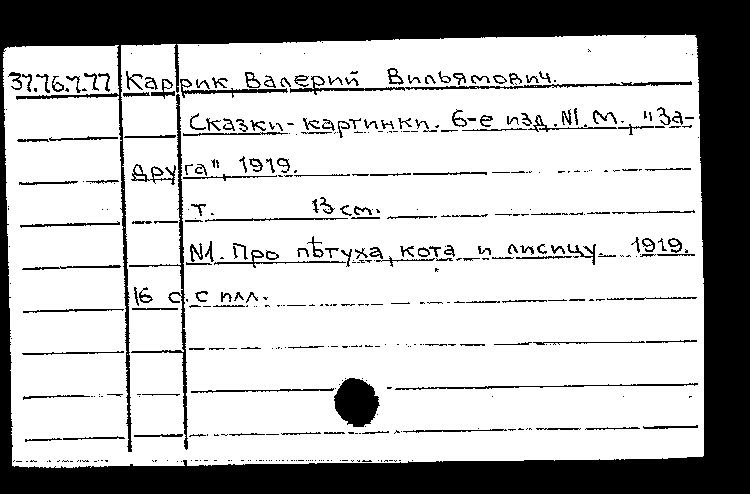 37.76.7.77 Каррик, Валерий Вильямович.
Сказки-картинки. 6-е изд. №1. М., "За-
друга", 1919.
т. 13 см.
№1. Про пѣтуха, кота и лисицу. 1919.
16 с. с илл.